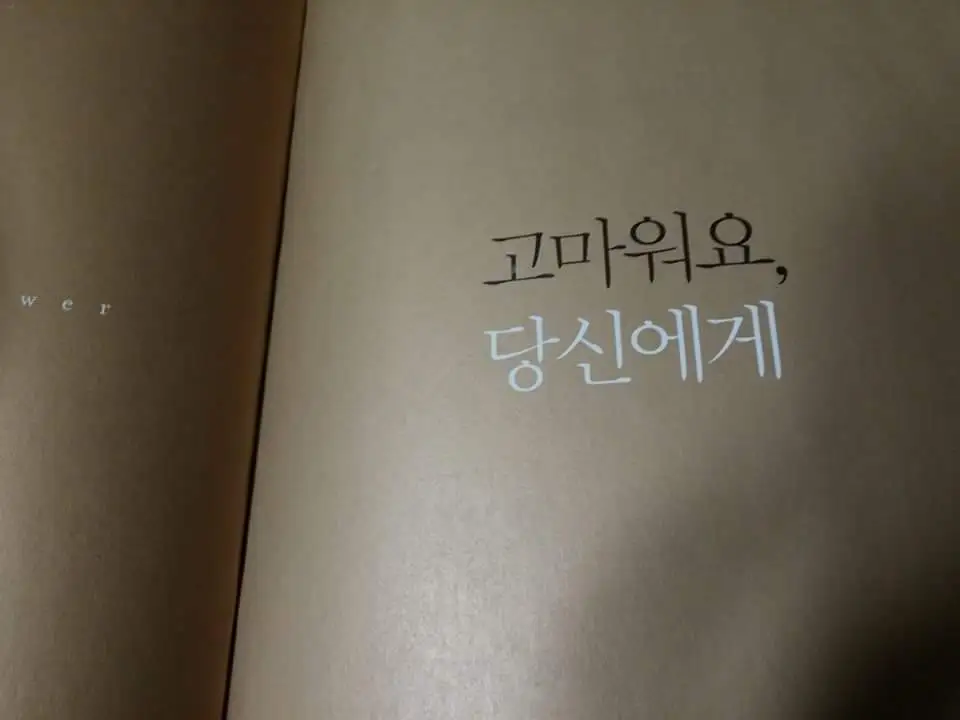 w e r
고마워요,
당신에게